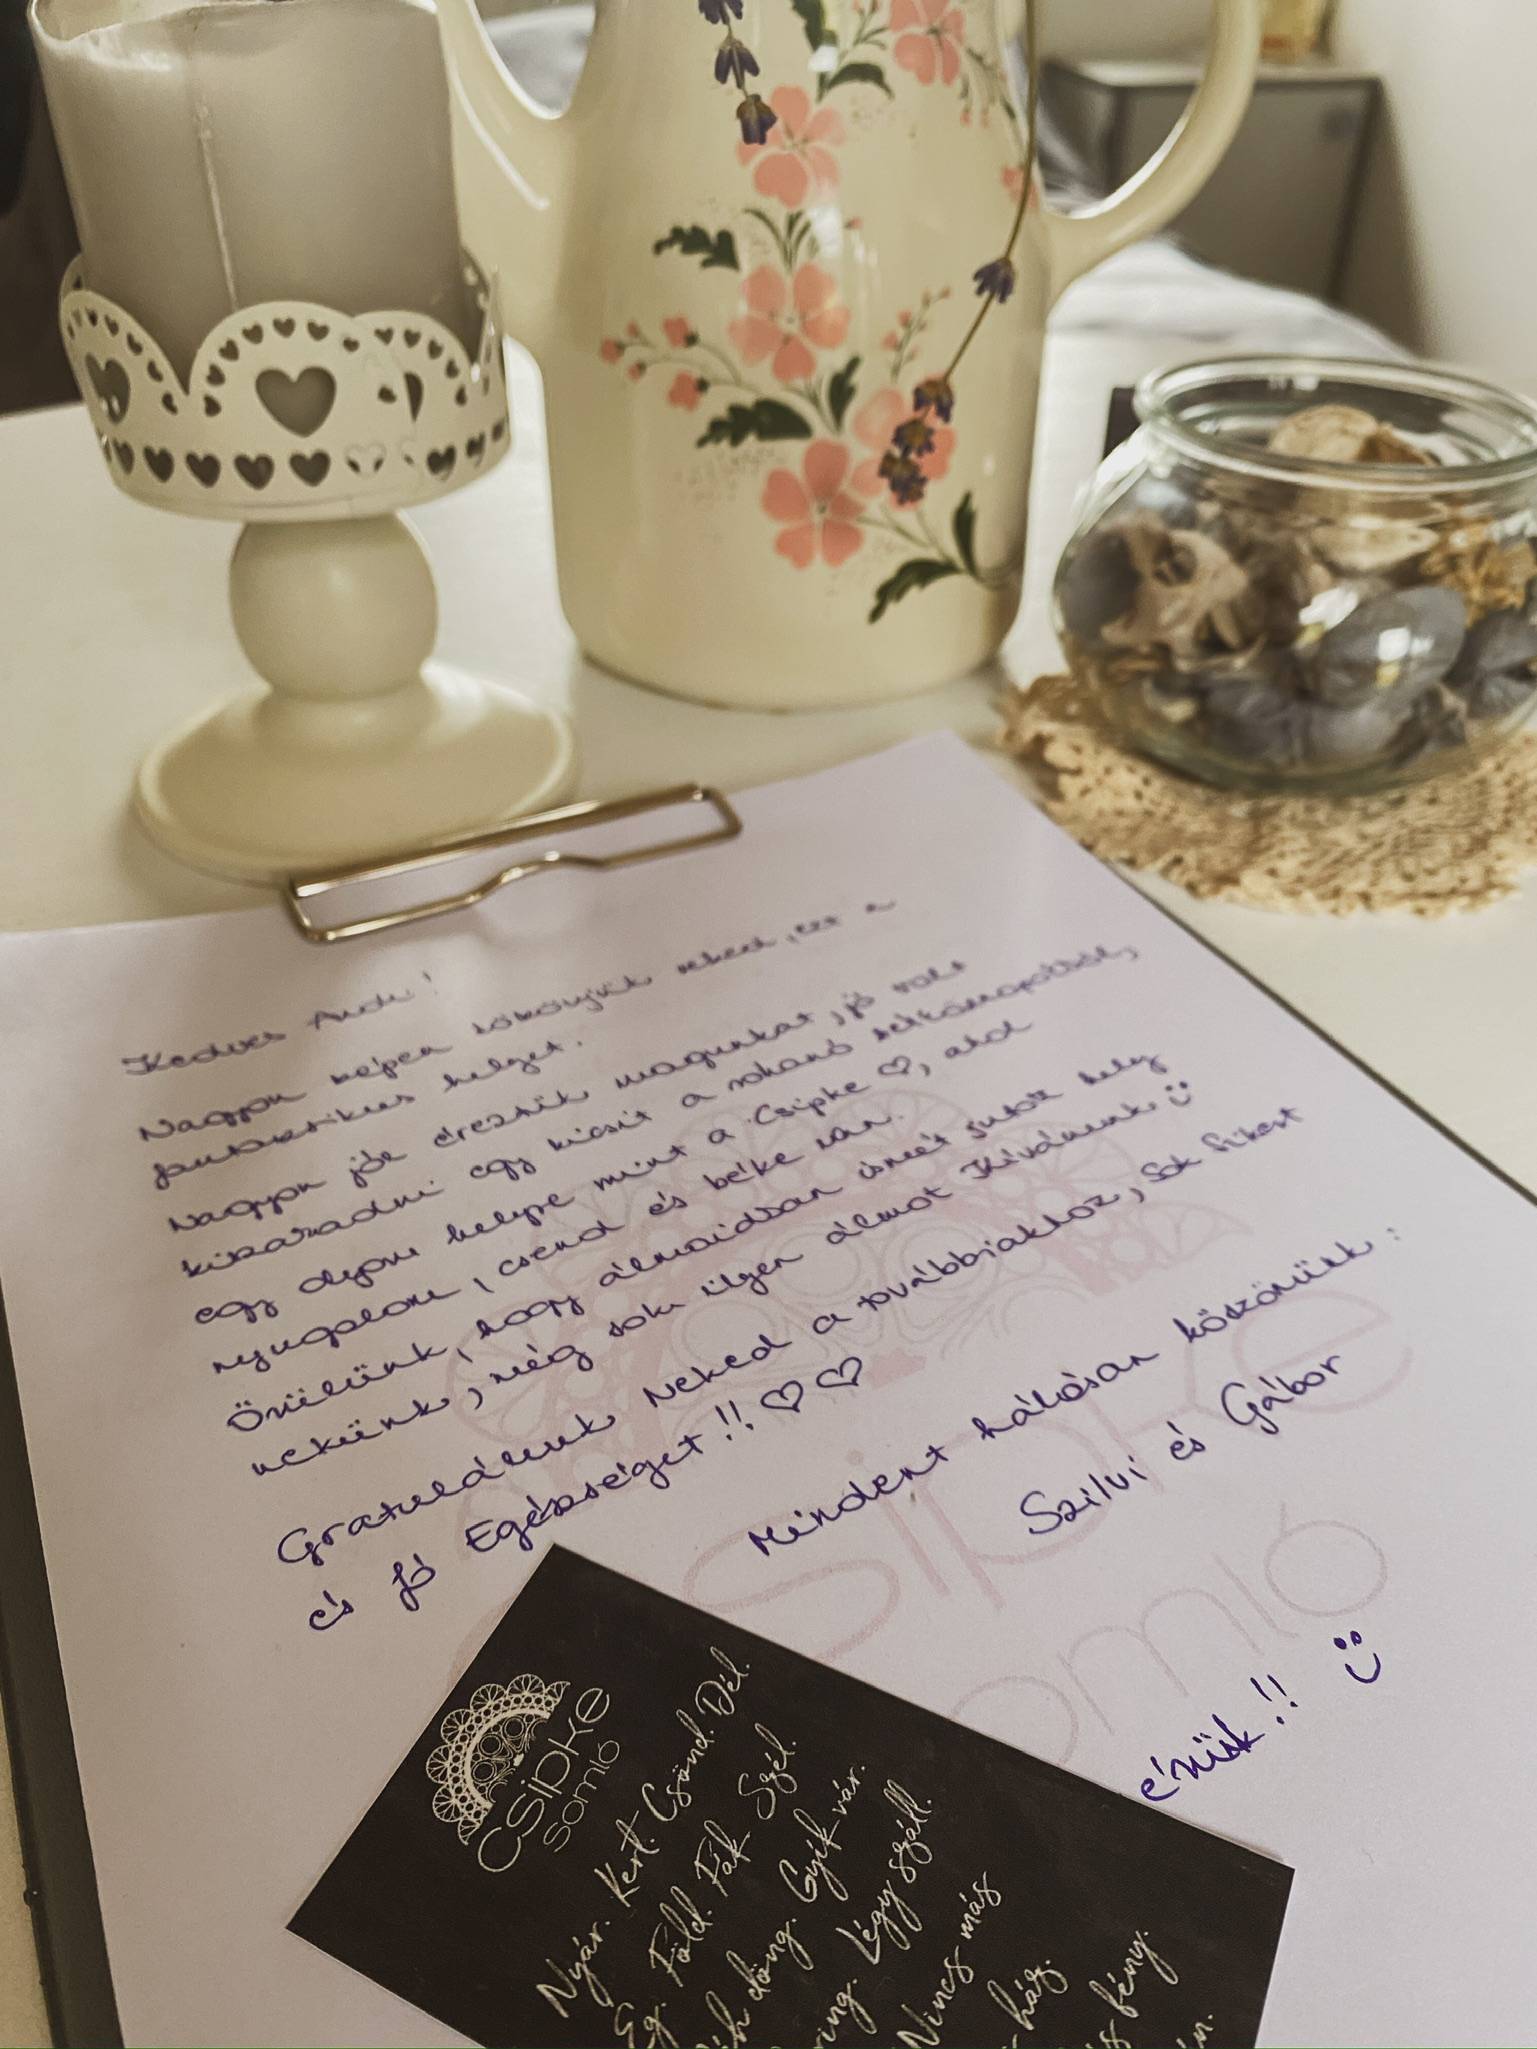 Kedves Andi!
Nagyon szépen köszönjük neked, ezt a
fantasztikus helyet.
Nagyon jól éreztük magunkat, jó volt
kiszaradni egy kicsit a rohanó hétköznapokból,
egy olyan helyre mint a Csipke ♡, ahol
nyugalom, csend és béke van.
Örülünk, hogy álmaidban ismét jutott hely
nekünk, még sok ilyen álmot Kívánunk
Gratulálunk Neked a továbbiakhoz, Sok Sikert
és Jó Egészséget!! ♡♡
Mindent hálásan köszönünk:
Szilvi és Gábor
érünk!!
CSIPKE
somló
CSIPKE
somló
Nyár. Kert. Csönd. Dél.
Ég. Föld. Fák. Szél.
Méh döng. Gyík vár.
Légy száll.
Nincs más
ház.
fény.